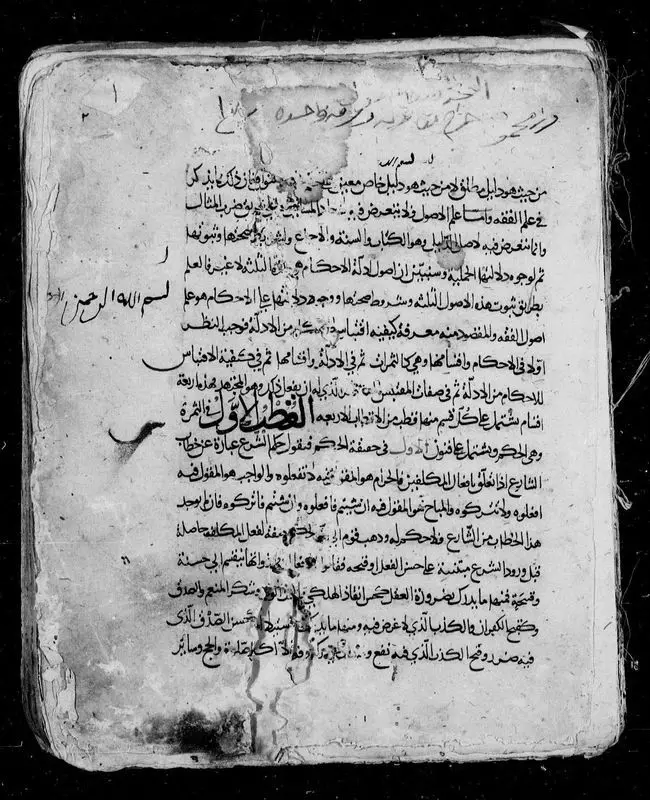 بسم الله
من حيث هو دليل مطلق لا من حيث هو دليل خاص معين فان ذلك مما يذكر
في علم الفقه واما علم الاصول فلا يتعرض فيه لاحاد المسائل ضرب المثال
وانما يتعرض فيه لاصل الدليل وهو الكتاب والسنة والاجماع صحتها وثبوتها
ثم لوجوه دلالتها الجملية وسنبين ان اصول ادلة الاحكام هي الثلثة لا غير فالعلم
بطريق ثبوت هذه الاصول الثلثة وشروط صحتها ووجوه دلالتها على الاحكام هو علم
لسم الله الرحمن
اصول الفقه والمقصود منه معرفة كيفية اقتباس الاحكام من الادلة فوجب النظر
اولا في الاحكام واقسامها وهي كالثمرات ثم في الادلة واقسامها ثم في كيفية الاقتباس
للاحكام من الادلة ثم في صفات المقتبس الذي له ان يفعل ذلك وهو المجتهد فهذه اربعة
اقسام يشتمل على كل قسم منها قطب من الاقطاب الاربعة القطب الاول في الثمرة
وهي الحكم ويشتمل على فنون الاول في حقيقة الحكم فنقول حكم الشرع عبارة عن خطاب
الشارع اذا تعلق بافعال المكلفين فالحرام هو المقول فيه لا تفعلوه والواجب هو المقول فيه
افعلوه ولا تتركوه والمباح هو المقول فيه ان شئتم فافعلوه وان شئتم فاتركوه فان لم يوجد
هذا الخطاب من الشارع فلا حكم له وذهب قوم الى صفة لفعل المكلف حاصلة
قبل ورود الشرع مبتنية على حسن الفعل او قبحه فقالوا وانها تنقسم الى حسنة
وقبيحة فمنها ما يدرك بضرورة العقل كحسن انقاذ الهلكى وشكر المنعم والصدق
وكقبح الكفران والكذب الذي لا غرض فيه ومنها ما يدرك كحسن الصدق الذي
فيه ضرر وقبح الكذب الذي فيه نفع ومنها والحج وسائر